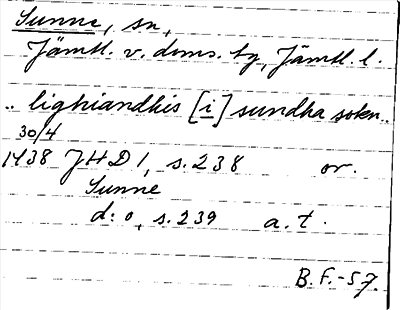 Sunne, sn,
Jämtl. v. doms. tg, Jämtl. l.
.. lighiandhis [i] sundha sokn..
30/4
1438 JHD 1, s. 238 or.
Sunne
d:o, s. 239 a. t.
B. F. -57.